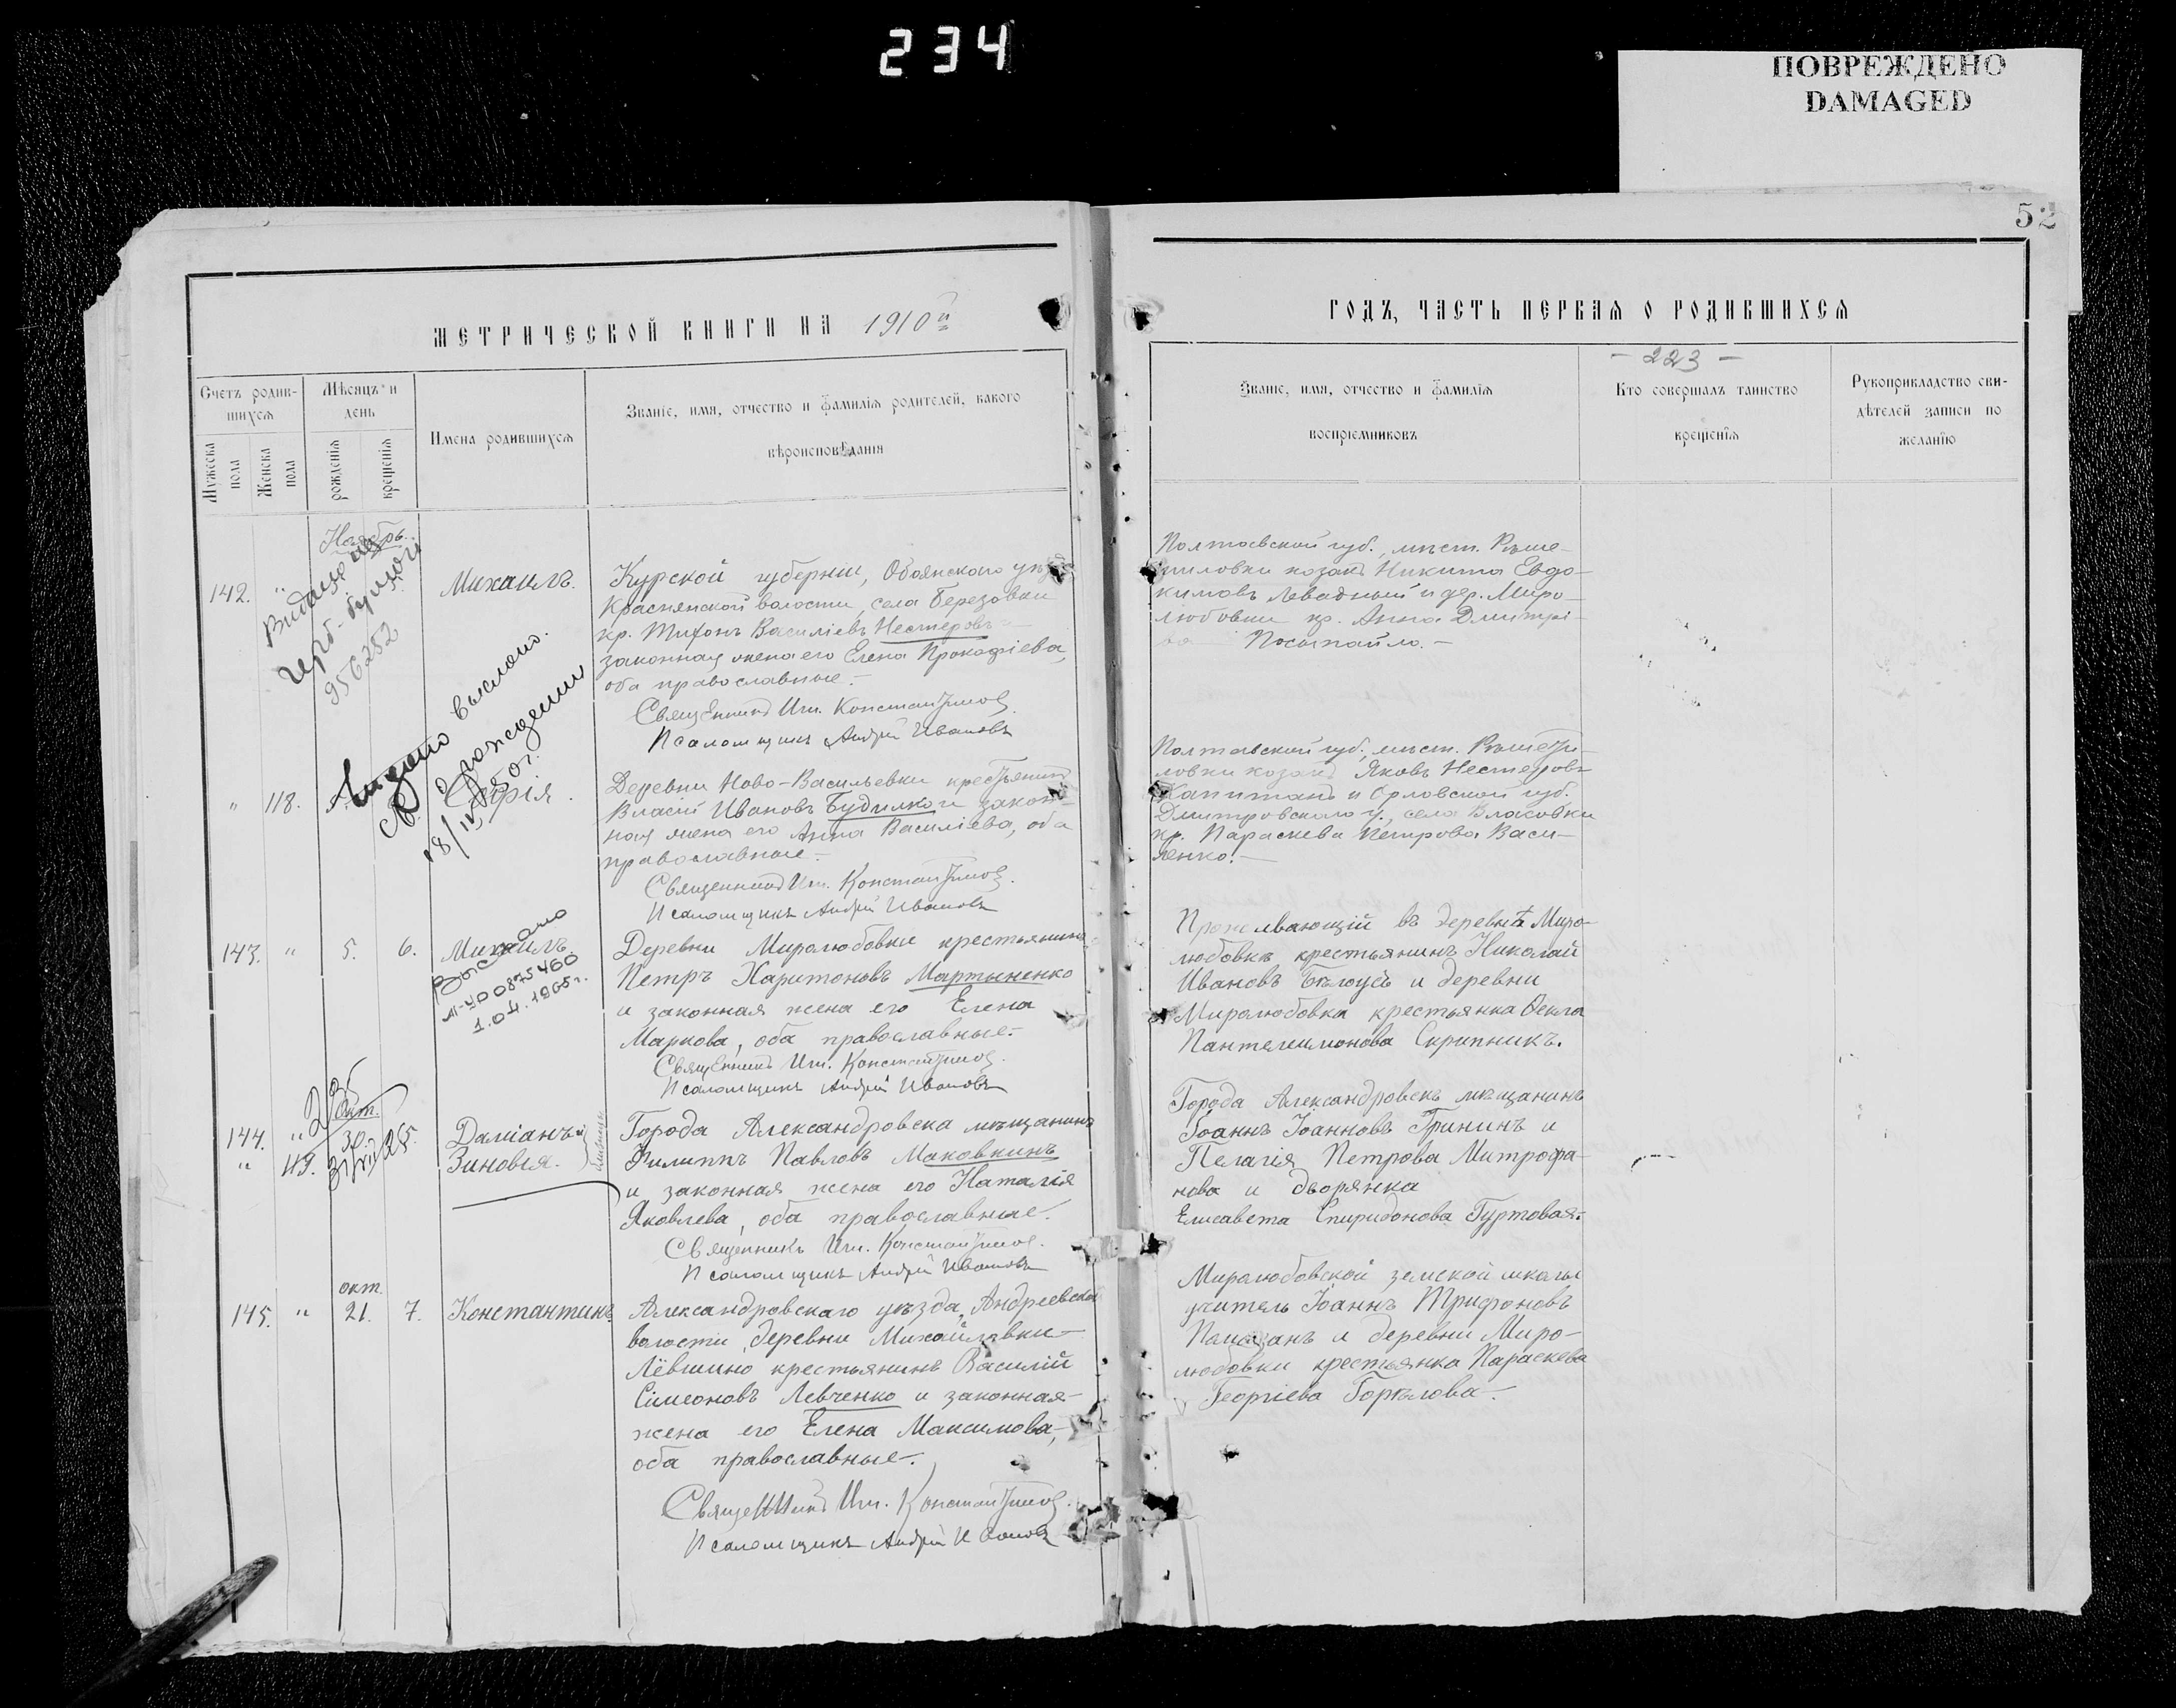 234
ПОВРЕЖДЕНО
DAMAGED
52
МЕТРИЧЕСКОЙ КНИГИ НА 1910й
Счетъ родив-
шихся
Мужеска пола
Женска пола
Мѣсяцъ и
день
рожденія
крещенія
Имена родившихся
Званіе, имя, отчество и фамилія родителей, какого
вѣроисповѣданія
Ноябрь.
142. "
Михаилъ.
956252
Курской губерніи, Обоянскаго уѣзда
Краснянской волости, села Березовки
кр. Тихонъ Василіевъ Нестеровъ
законная жена его Елена Прокофіева,
оба православные.-
Священникъ Иг. Константиновъ.
Псаломщикъ Андрей Ивановъ
" 118.
выслано.
о рождении
18/IV 50 г.
Деревни Ново-Васильевки крестьянинъ
Власій Ивановъ Будилко и закон-
ная жена его Анна Василіева, оба
православные.-
Священникъ Иг. Константиновъ.
Псаломщикъ Андрей Ивановъ
143. " 5. 6. Михаилъ.
Выслано
1.04.1965г.
Деревни Миролюбовки крестьянинъ
Петръ Харитоновъ Мартыненко
и законная жена его Елена
Маркова, оба православные.-
Священникъ Иг. Константиновъ.
Псаломщикъ Андрей Ивановъ
окт.
144. " 30. Даміанъ и
" 119. Зиновія.
Города Александровска мѣщанинъ
Филиппъ Павловъ Маковкинъ
и законная жена его Наталія
Яковлева, оба православные.
Священникъ Иг. Константиновъ.
Псаломщикъ Андрей Ивановъ
окт.
145. " 21. 7. Константинъ
Александровскаго уѣзда, Андреевской
волости, деревни Михайловки-
Лёвшино крестьянинъ Василій
Симеоновъ Левченко и законная-
жена его Елена Максимова,
оба православные-.
Священникъ Иг. Константиновъ.
Псаломщикъ Андрей Ивановъ
ГОДЪ, ЧАСТЬ ПЕРВАЯ О РОДИВШИХСЯ
- 223 -
Званіе, имя, отчество и фамилія
воспріемниковъ
Кто совершалъ таинство
крещенія
Рукоприкладство сви-
дѣтелей записи по
желанію
Полтавской губ., мѣст. Рѣше-
тиловки козакъ Никита Евдо-
кимовъ Левадный и дер. Миро-
любовки кр. Анна Дмитрі-
Посыпайло.-
Полтавской губ., мѣст. Рѣшети-
ловки козакъ Яковъ Нестеровъ
Капитанъ и Орловской губ.
Дмитровскаго у., села Власовки
кр. Параскева Петрова Васи-
ленко.-
Проживающій въ деревнѣ Миро-
любовкѣ крестьянинъ Николай
Ивановъ Бѣлоусъ и деревни
Миролюбовка крестьянка Ѳекла
Пантелимонова Скрипникъ.
Города Александровскъ мѣщанинъ
Іоаннъ Іоанновъ Грининъ и
Пелагія Петрова Митрофа-
нова и дворянка
Елисавета Спиридонова Гуртовая.-
Миролюбовской земской школы
учитель Іоаннъ Трифоновъ
и деревни Миро-
любовки крестьянка Параскева
Георгіева Горѣлова-.